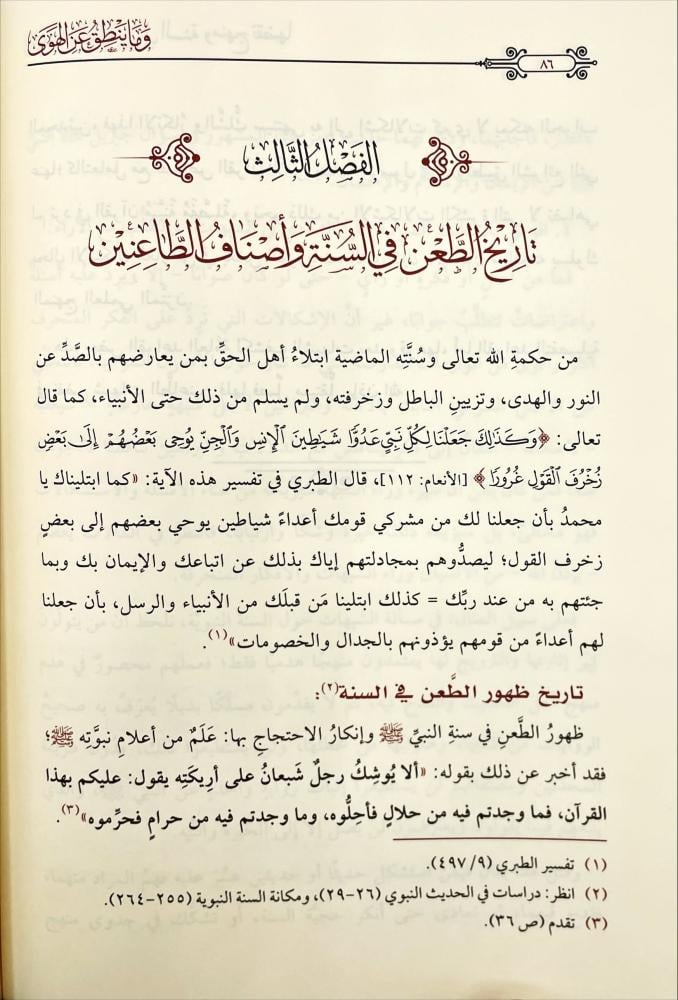 وَمَا يَنْطِقُ عَنِ الهَوَى
٨٦
الفَصْلُ الثَّالِث
تَارِيْخُ الطَّعْنِ فِي السُّنَّةِ وَأَصْنَافُ الطَّاعِنِيْنَ
من حكمةِ الله تعالى وسُنَّتِه الماضية ابتلاءُ أهل الحقِّ بمن يعارضهم بالصَّدِّ عن
النور والهدى، وتزيينِ الباطل وزخرفته، ولم يسلم من ذلك حتى الأنبياء، كما قال
تعالى: ﴿وَكَذَٰلِكَ جَعَلْنَا لِكُلِّ نَبِيٍّ عَدُوًّا شَيَٰطِينَ ٱلْإِنسِ وَٱلْجِنِّ يُوحِى بَعْضُهُمْ إِلَىٰ بَعْضٍ
زُخْرُفَ ٱلْقَوْلِ غُرُورًا﴾ [الأنعام: ١١٢]، قال الطبري في تفسير هذه الآية: «كما ابتليناك يا
محمدُ بأن جعلنا لك من مشركي قومك أعداءً شياطين يوحي بعضهم إلى بعضٍ
زخرف القول؛ ليصدُّوهم بمجادلتهم إياك بذلك عن اتباعك والإيمان بك وبما
جئتهم به من عند ربِّك = كذلك ابتلينا مَن قبلَك من الأنبياء والرسل، بأن جعلنا
لهم أعداءً من قومهم يؤذونهم بالجدال والخصومات»(١).
تاريخ ظهور الطَّعن في السنة(٢):
ظهورُ الطَّعنِ في سنةِ النبيِّ ﷺ وإنكارُ الاحتجاجِ بها: عَلَمٌ من أعلامِ نبوَّتِه ﷺ؛
فقد أخبر عن ذلك بقوله: «ألا يُوشِكُ رجلٌ شَبعانُ على أريكَتِه يقول: عليكم بهذا
القرآن، فما وجدتم فيه من حلالٍ فأحِلُّوه، وما وجدتم فيه من حرامٍ فحرِّموه»(٣).
(١) تفسير الطبري (٩/ ٤٩٧).
(٢) انظر: دراسات في الحديث النبوي (٢٦-٢٩)، ومكانة السنة النبوية (٢٥٥-٢٦٤).
(٣) تقدم (ص ٣٦).